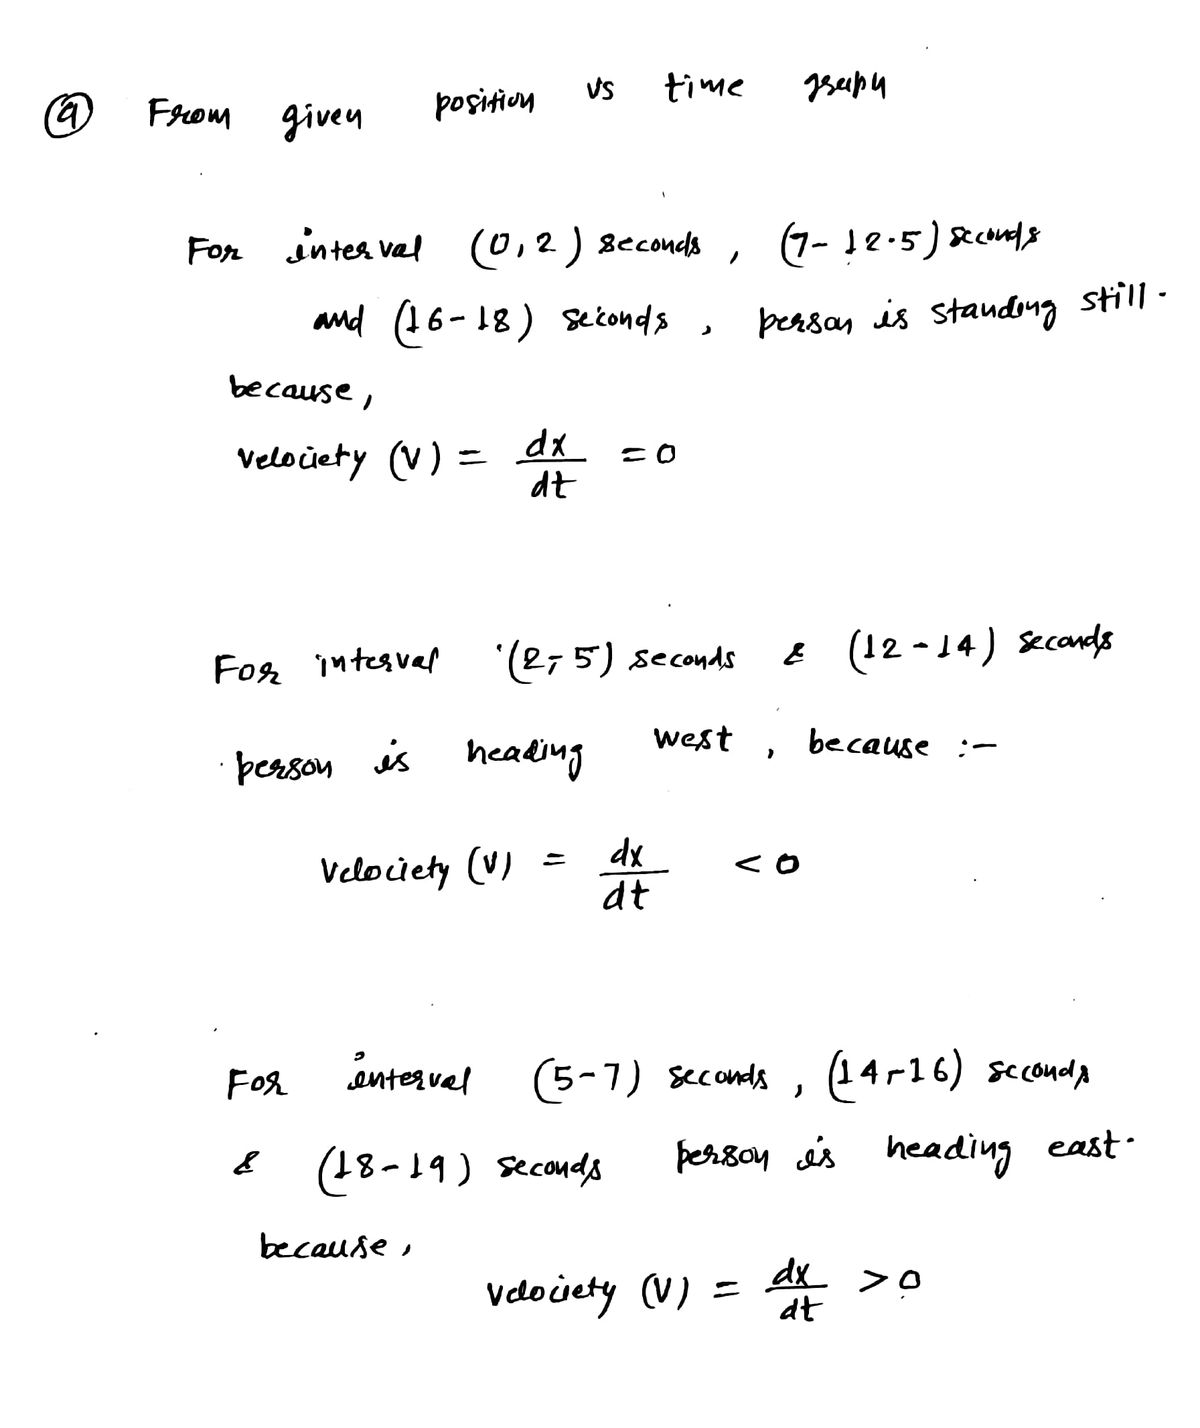 (a) From given position vs time graph
For interval (0,2) seconds, (7-12.5) seconds
and (16-18) seconds, person is standing still.
because,
velociety (V) = dx/dt = 0
For interval (2-5) seconds & (12-14) seconds
person is heading west, because :-
Velociety (V) = dx/dt < 0
For interval (5-7) seconds, (14-16) seconds
& (18-19) seconds person is heading east.
because,
velociety (V) = dx/dt > 0